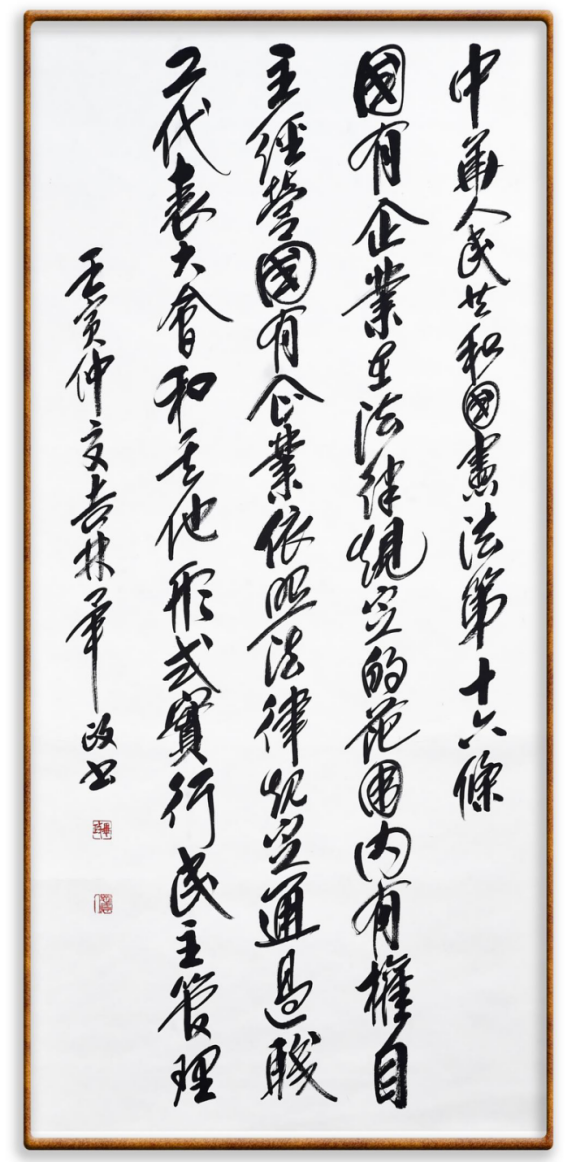 中華人民共和國憲法第十六條
國有企業在法律規定的范圍内有權自
主經營國有企業依照法律規定通過職
工代表大會和其他形式實行民主管理
壬寅仲夏吉林單政书